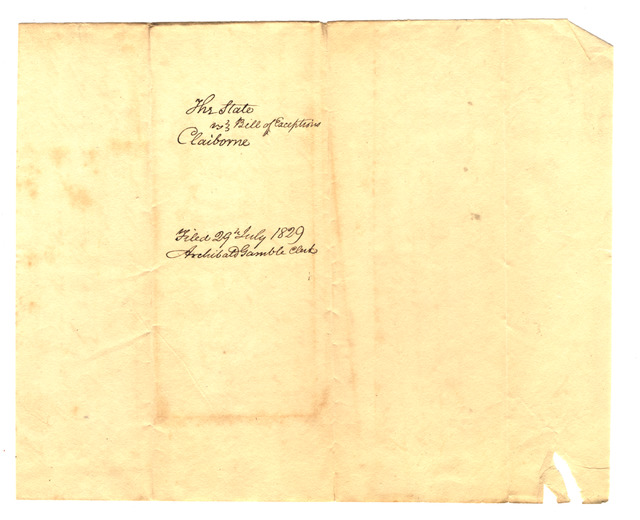 The State
vs } Bill of Exceptions
Claiborne
Filed 29th July 1829
Archibald Gamble Clerk